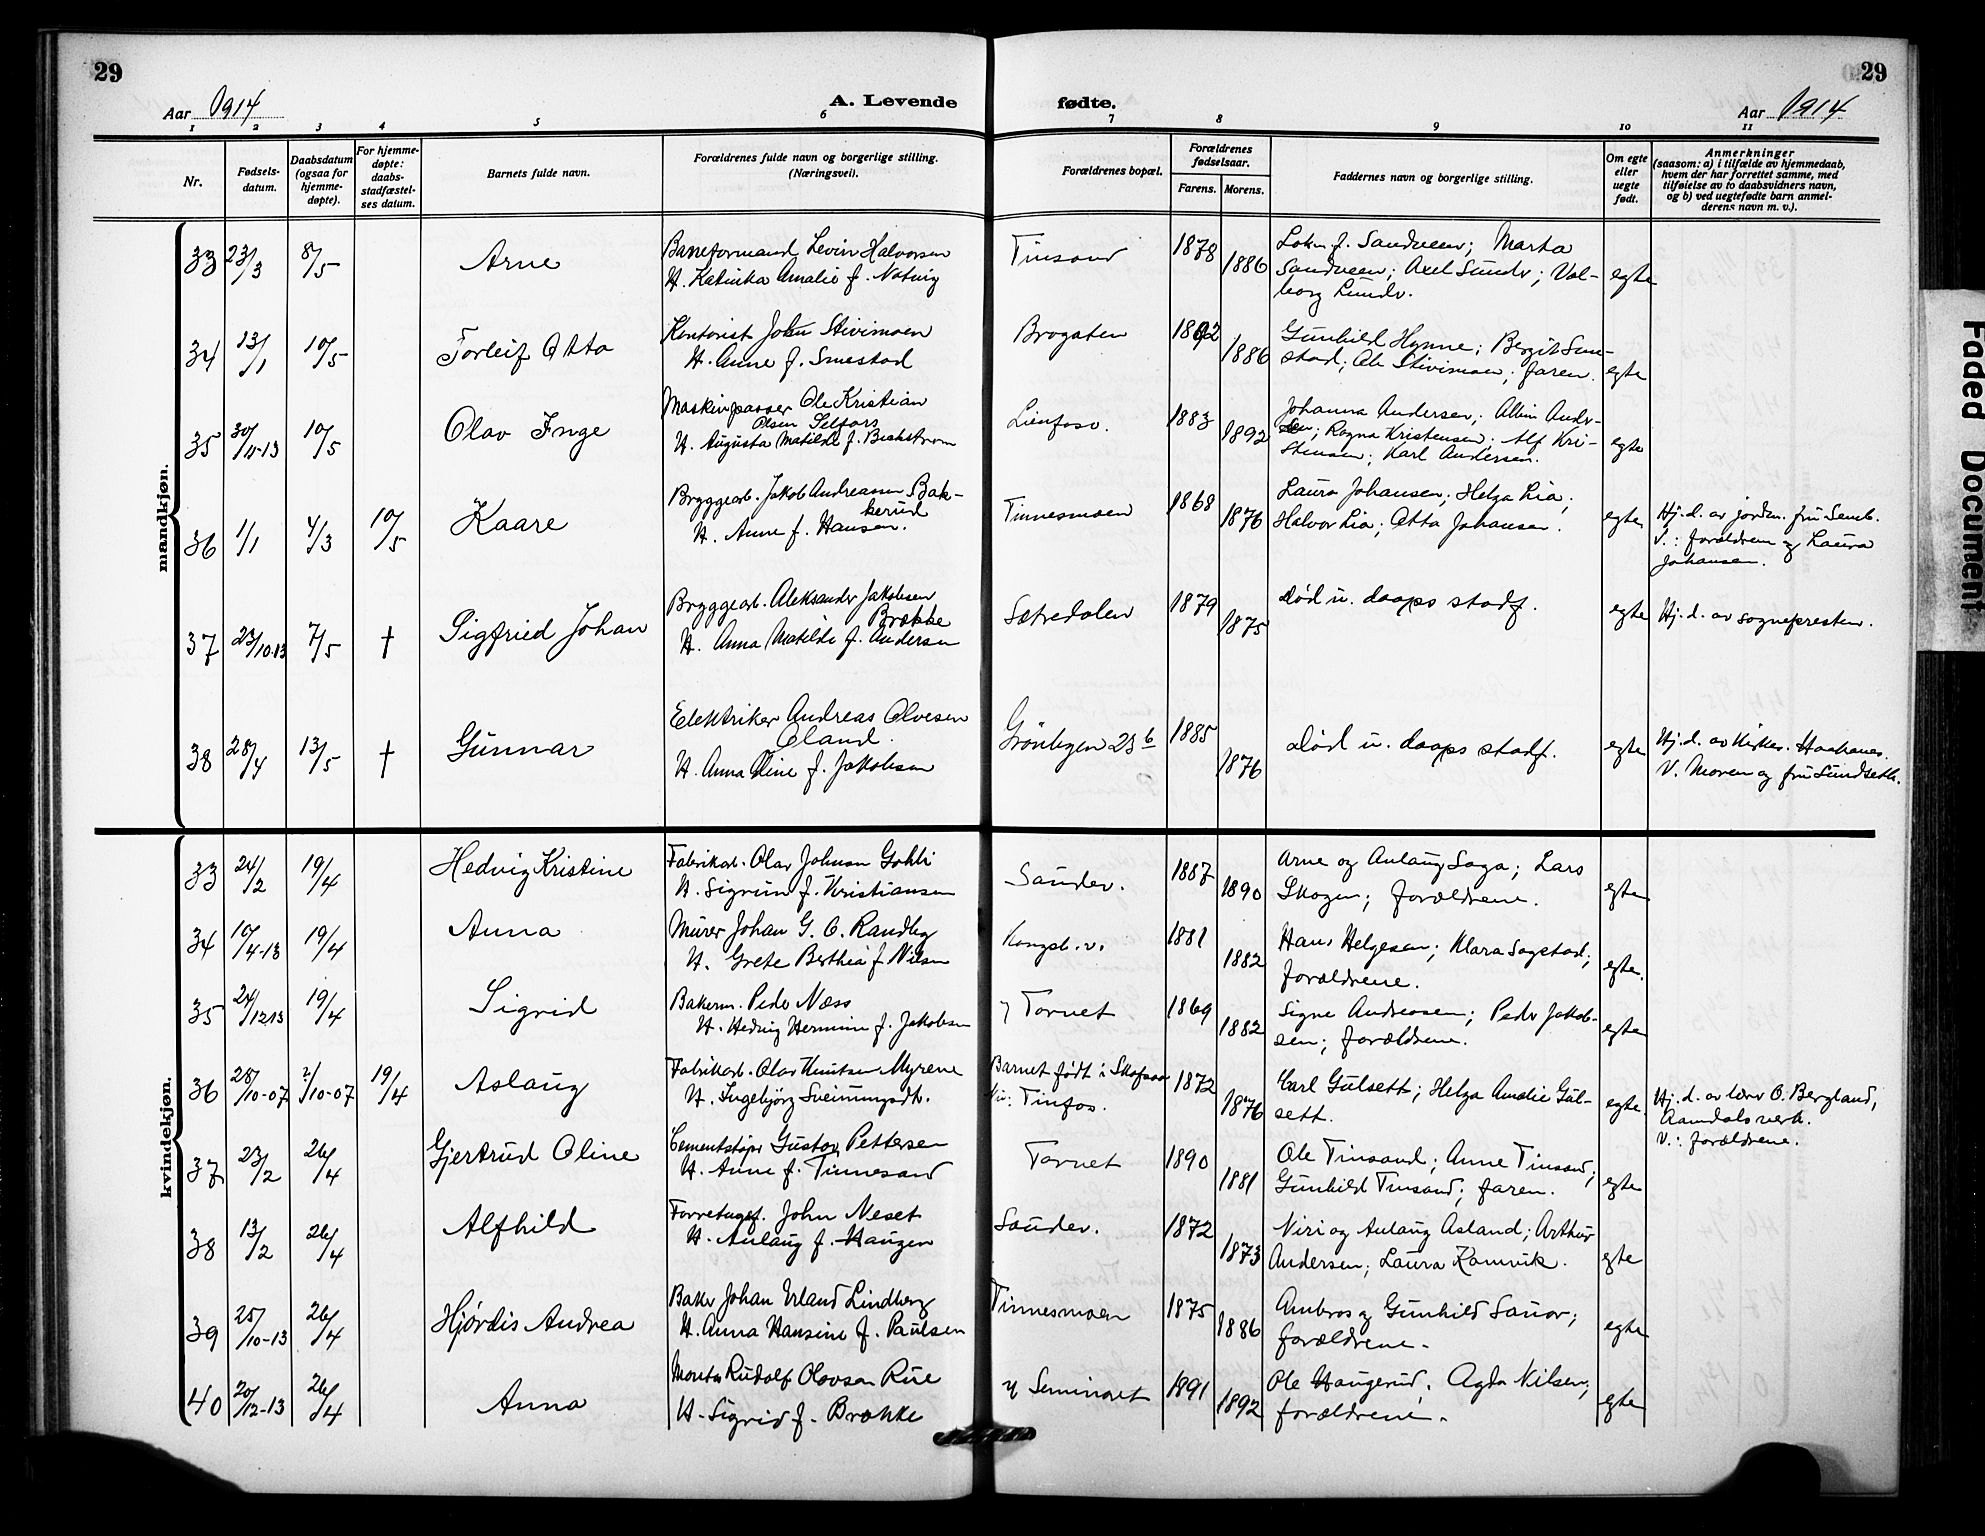 29
29
Aar 1914
A. Levende
fødte.
Aar 1914
1 2 3 4 5 6 7 8 9 10 11
Nr.
Fødsels-
datum.
Daabsdatum
(ogsaa for
hjemme-
døpte).
For hjemme-
døpte:
daabs-
stadfæstel-
ses datum.
Barnets fulde navn.
Forældrenes fulde navn og borgerlige stilling.
(Næringsvei).
Forældrenes bopæl.
Forældrenes
fødselsaar.
Farens. Morens.
Faddernes navn og borgerlige stilling.
Om egte
eller
uegte
født.
Anmerkninger
(saasom: a) i tilfælde av hjemmedaab,
hvem der har forrettet samme, med
tilføielse av to daabsvidners navn,
og b) ved uegtefødte barn anmel-
derens navn m. v.).
mandkjøn.
33 23/3 8/5 Arne
Baneformand Levin Halvorsen
H. Katinka Amalie f. Natvig
Tinsand 1878 1886
Sandveen; Marta
Sandveen; Axel Lunde; Val-
borg Lunde.
egte
34 13/1 10/5 Torleif Otto
Kontorist John Stivimoen
H. Anne f. Smestad
Brogaten 1882 1886
Gunhild Hynne; Bergit Sme-
stad; Ole Stivimoen; faren.
egte
35 30/11-13 10/5 Olav Inge
Maskinpasser Ole Kristian
Olsen Selfors
H. Augusta Matilde f. Beckstrøm
Lienfoss. 1883 1892
Johanna Andersen; Albin Ander-
sen; Ragna Kristensen; Alf Kri-
stensen; Karl Andersen.
egte
36 1/1 4/3 10/5 Kaare
Bryggearb. Jakob Andreassen Bak-
kerud
H. Anne f. Hansen.
Tinnesmoen 1868 1876
Laura Johansen; Helga Lia;
Halvor Lia; Otto Johansen.
egte
Hj. d. av jordm. fru Semb.
V.: forældrene og Laura
Johansen.
37 23/10-13 7/5 † Sigfried Johan
Bryggearb. Aleksander Jakobsen
Brække
H. Anna Matilde f. Andersen
Sætredalen 1879 1875
død u. daaps stadf.
egte
Hj. d. av sognepresten.
38 28/4 13/5 † Gunnar
Elektriker Andreas Olvesen
Oland.
H. Anna Oline f. Jakobsen
Grønbygen 23 b 1885 1876
død u. daaps stadf.
egte
Hj. d. av kirkes. Haakanes.
V. Moren og fru Sundseth.
kvindekjøn.
33 24/2 19/4 Hedvig Kristine
Fabrikarb. Olav Johnsen Gohli
H. Sigrun f. Kristiansen
Sauder. 1887 1890
Arne og Aulaug Saga; Lars
Skogen; forældrene.
egte
34 10/4-13 19/4 Anna
Murer Johan G. O. Randby
H. Grete Berthea f. Nilsen
Kongsb. v. 1881 1882
Hans Helgesen; Klara Sagstad;
forældrene.
egte.
35 24/12 13 19/4 Sigrid
Bakerm. Peder Næss
H. Hedvig Hermine f. Jakobsen
Torvet 1869 1882
Signe Andreasen; Peder Jakob-
sen; forældrene.
egte
36 28/10-07 ?/10-07 19/4 Aslaug
Fabrikarb. Olav Knutsen Myrene
H. Ingebjörg Sveinungsdt.
Barnet født i Skafsaa
Nu: Tinfos. 1872 1876
Carl Gulsett; Helga Amalie Gul-
sett.
egte
Hj. d. av lærer O. Bergland,
Aamdals verk.
V.: forældrene.
37 23/2 26/4 Gjertrud Oline
Cementstøper Gustav Pettersen
H. Anne f. Tinnesand
Torvet 1890 1881
Ole Tinsand; Anne Tinsand;
Gunhild Tinsand; faren.
egte
38 13/2 26/4 Alfhild
Forretngsf. John Neset
H. Aulaug f. Haugen
Sauder. 1872 1873
Niri og Aulaug Asland; Arthur
Andersen; Laura Kamvik.
egte
39 25/10-13 26/4 Hjørdis Andrea
Baker Johan Erland Lindberg
H. Anna Hansine f. Paulsen
Tinnesmoen 1875 1886
Ambros og Gunhild Sauar;
forældrene.
egte
40 20/12-13 26/4 Anna
Montør Rudolf Olavsen Rue
H. Sigrid f. Brække
Seminaret 1891 1892
Ole Haugerud; Agda Nilsen;
forældrene.
egte
Faded Document